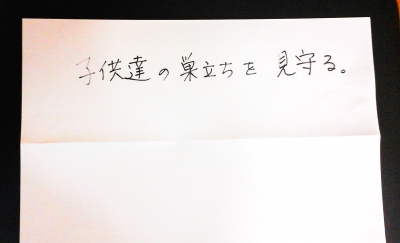 子供達の巣立ちを見守る。